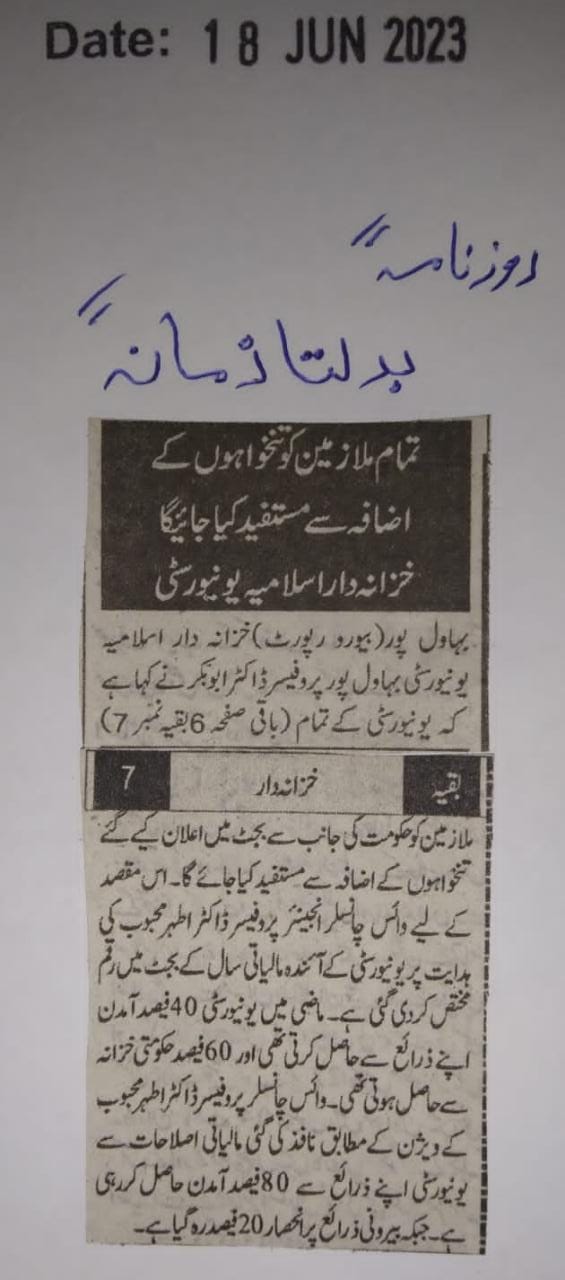 Date: 18 JUN 2023
روزنامہ "
بدلتا زمانہ "
تمام ملازمین کو تنخواہوں کے
اضافہ سے مستفید کیا جائیگا
خزانہ دار اسلامیہ یونیورسٹی
بہاول پور (بیورو رپورٹ) خزانہ دار اسلامیہ
یونیورسٹی بہاول پور پروفیسر ڈاکٹر ابوبکر نے کہا ہے
کہ یونیورسٹی کے تمام (باقی صفحہ 6 بقیہ نمبر 7)
بقیہ خزانہ دار 7
ملازمین کو حکومت کی جانب سے بجٹ میں اعلان کیے گئے
تنخواہوں کے اضافہ سے مستفید کیا جائے گا۔ اس مقصد
کے لیے وائس چانسلر انجینئر پروفیسر ڈاکٹر اطہر محبوب کی
ہدایت پر یونیورسٹی کے آئندہ مالیاتی سال کے بجٹ میں رقم
مختص کر دی گئی ہے۔ ماضی میں یونیورسٹی 40 فیصد آمدن
اپنے ذرائع سے حاصل کرتی تھی اور 60 فیصد حکومتی خزانہ
سے حاصل ہوتی تھی۔ وائس چانسلر پروفیسر ڈاکٹر اطہر محبوب
کے ویژن کے مطابق نافذ کی گئی مالیاتی اصلاحات سے
یونیورسٹی اپنے ذرائع سے 80 فیصد آمدن حاصل کر رہی
ہے۔ جبکہ بیرونی ذرائع پر انحصار 20 فیصد رہ گیا ہے۔